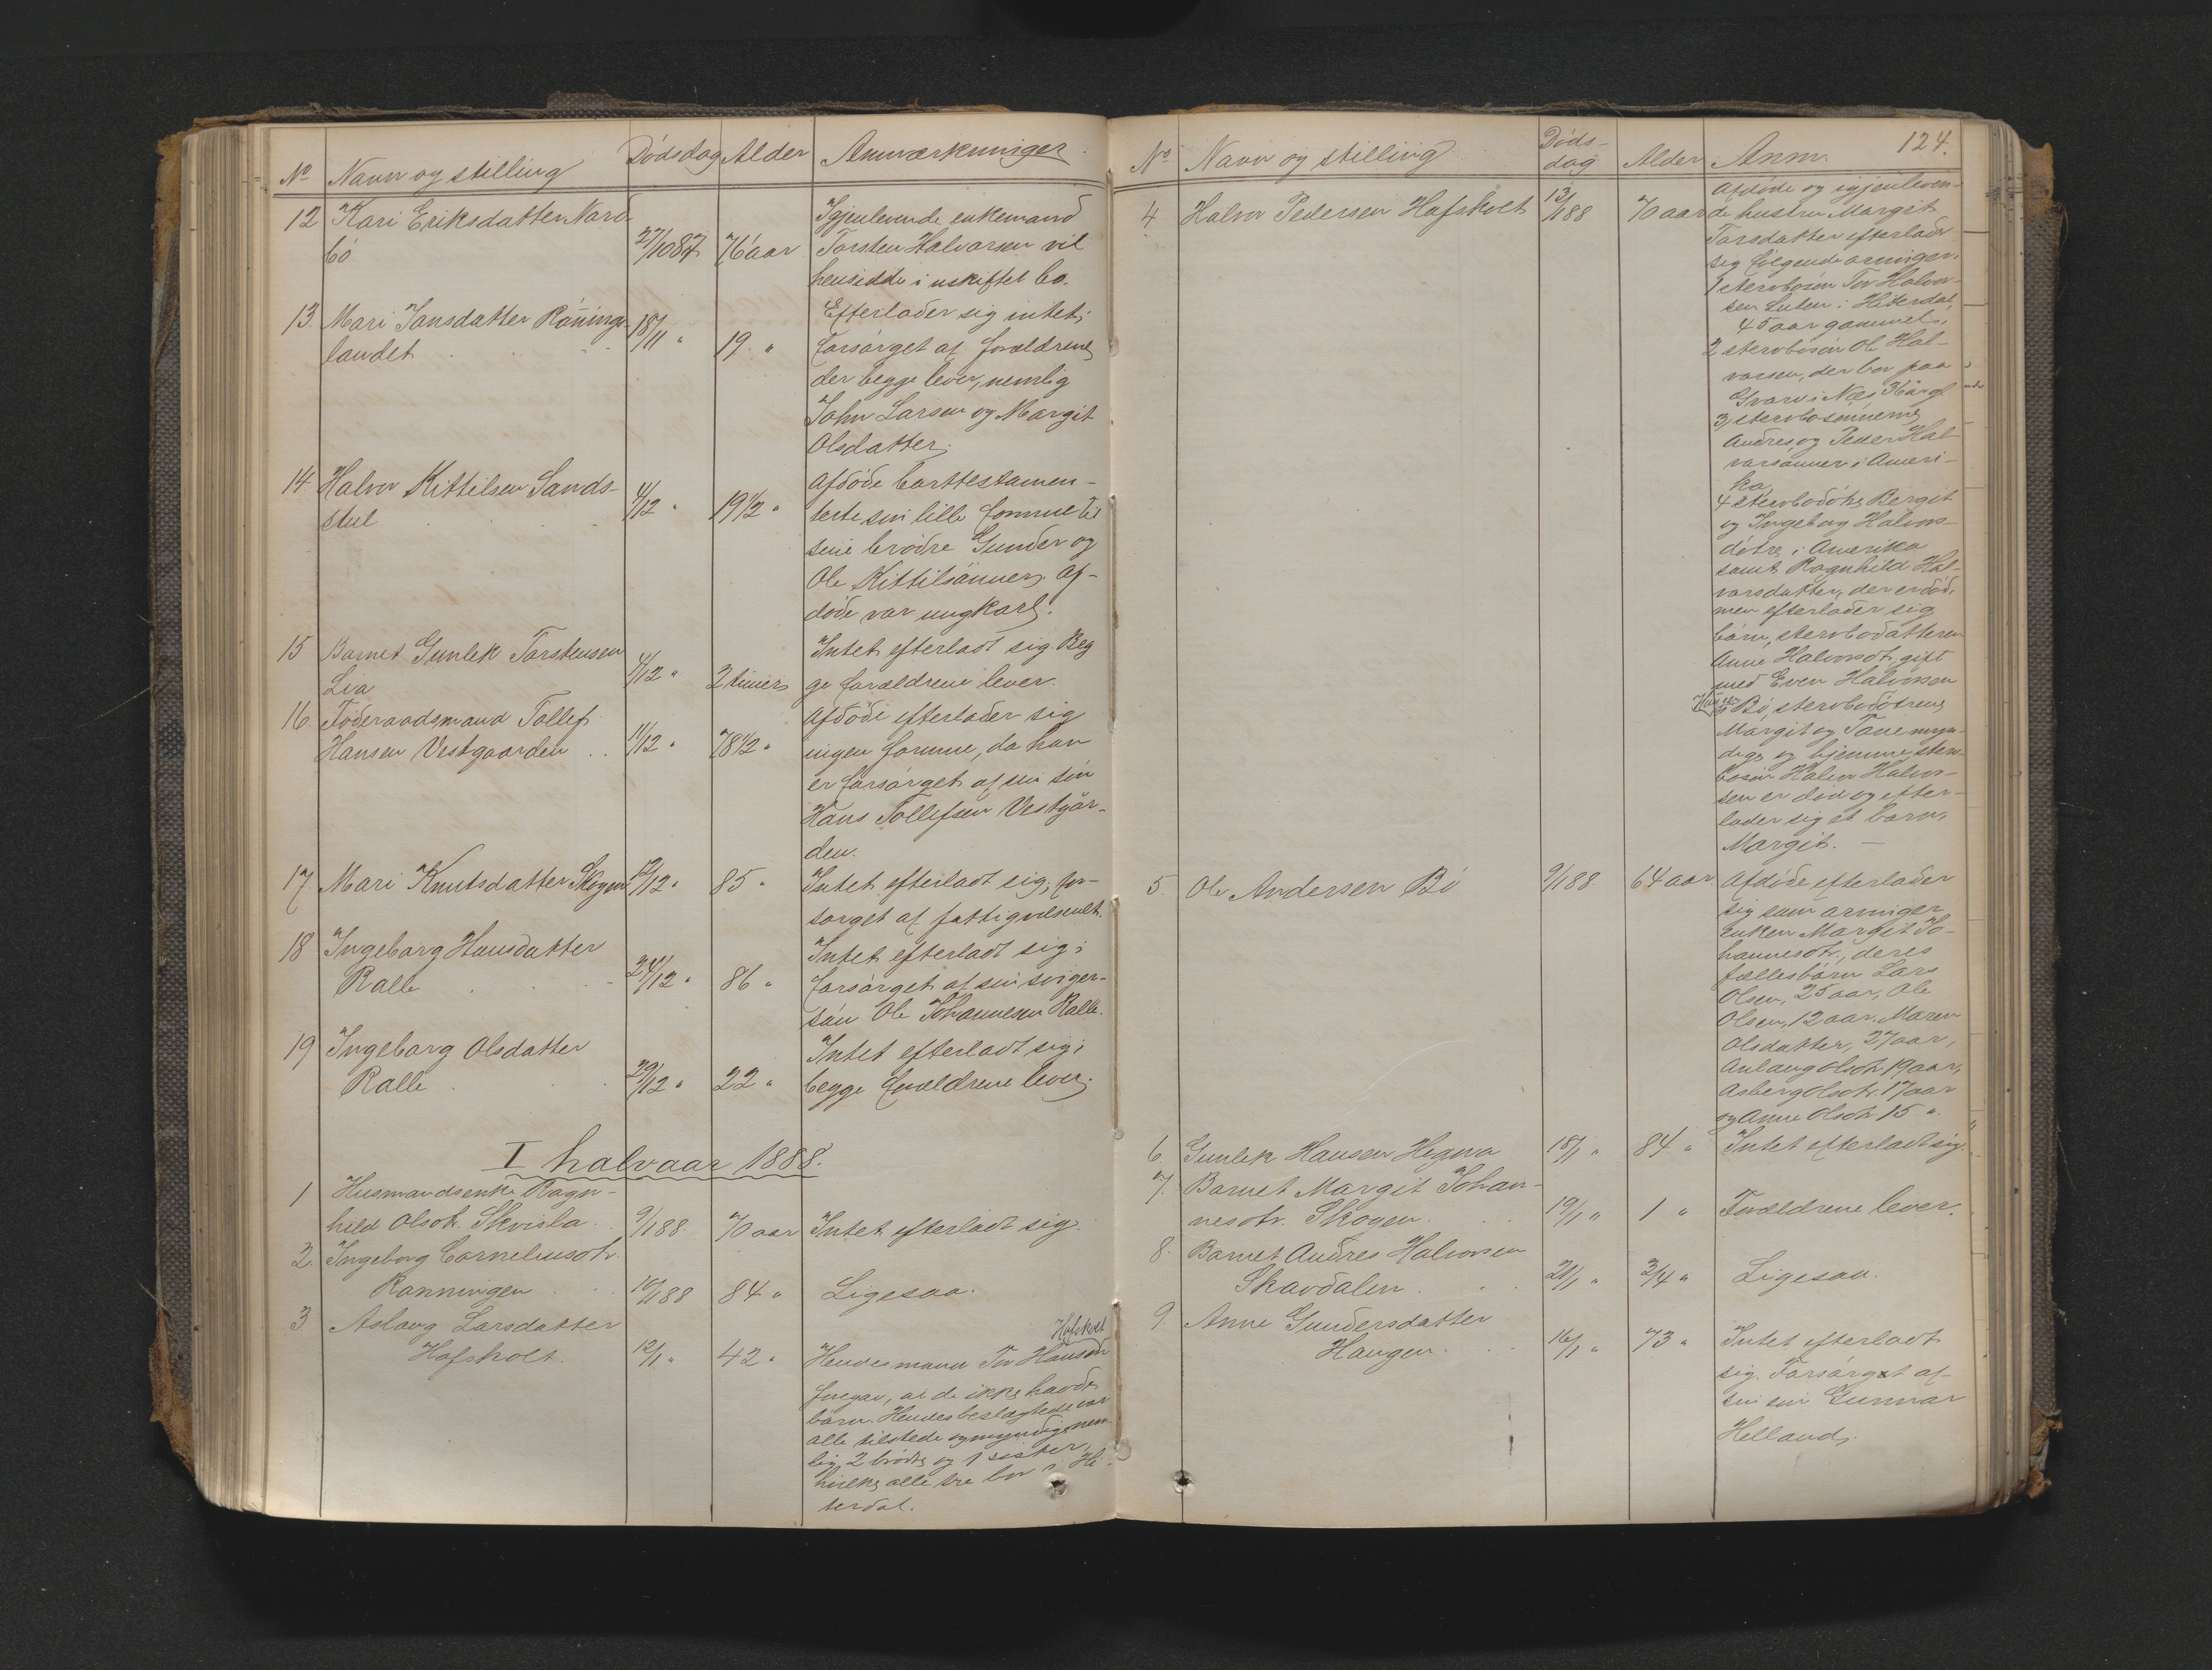 No Navn og stilling Dödsdag Alder Anmærkninger
12 Kari Eriksdatter Nord-
bö 27/10 87 76 aar
Igjenlevende enkemand
Torsten Halvorsen vil
hensidde i uskiftet bo.
13. Mari Jonsdatter Rönnings-
landet 18/11 " 19 "
Efterlader sig intet;
forsörget af forældrene,
der begge lever, nemlig
John Larsen og Margit
Olsdatter.
14 Halvor Kittilsen Sands-
stul 4/12 " 19 1/2 "
Afdöde borttestamen-
terte sin lille formue til
sine brödre Gunder og
Ole Kittilsönner. Af-
döde var ungkarl.
15 Barnet Gunlek Torstensen
Lia 4/12 " 2 timer
Intet efterladt sig. Beg
ge forældrene lever.
16. Föderaadsmand Tollef
Hansen Vestgaarden 11/12 " 78 1/2 "
Afdöde efterlader sig
ingen formue, da han
er forsörget af sin sön
Hans Tollefsen Vestgår-
den.
17 Mari Knutsdatter Skogen 12/12 " 85 "
Intet efterladt sig; for-
sörget af fattigvæsenet.
18 Ingeborg Hansdatter
Ralle 24/12 " 86 "
Intet efterladt sig;
forsörget af sin sviger-
sön Ole Johannesen Ralle.
19 Ingeborg Olsdatter
Ralle 29/12 " 22 "
Intet efterladt sig;
begge forældrene lever.
I halvaar 1888.
1 Husmandsenke Ragn-
hild Olsdt. Skvisla 9/1 88 70 aar Intet efterladt sig.
2. Ingeborg Corneliusdtr.
Rönningen 10/1 88 84 " Ligesaa.
3 Aslaug Larsdatter
Hafskolt
Hofsholt. 12/1 " 42 "
Hendes mand Tov Hansen
foregav, at de ikke havde
börn. Hendes beslægtede var
alle tilstede og myndige nem-
lig 2 brödre og 1 sister,
hvilke alle tre bor i Hi-
terdal.
No Navn og stilling Döds-
dag Alder Anm. 124.
4 Halvor Pedersen Hafskolt 13/1 88 70 aar
Afdöde og igjenleven-
de hustru Margit
Torsdatter efterlader
sig fölgende arvinger.
1 stervbosön Tov Halvor-
sen Luten i Hiterdal,
45 aar gammel,
2 stervbosön Ole Hal-
vorsen, der bor paa
Gvarv i Næs 36 år gl
3, stervbosönnerne
Andres og Peder Hal
vorsönner i Ameri-
ka,
4 stervbodötre Bergit
og Ingeborg Halvors-
dötre i Amerika
samt Ragnhild Hal-
vorsdatter, der er död,
men efterlader sig
börn, stervbodatteren
Anne Halvorsdtr. gift
med Even Halvorsen
Bö, stervbodötrene
Margit og Tone myn-
dige og hjemme, sterv-
bosön Halvor Halvor-
sen er död og efter-
lader sig et barn,
Margit. —
5. Ole Andersen Bö 9/1 88 64 aar
Afdöde efterlader
sig som arvinger
Enken Margit Jo-
hannesdtr., deres
fællesbörn Lars
Olsen, 25 aar, Ole
Olsen, 12 aar. Maren
Olsdatter, 27 aar,
Anlaug Olsdtr. 19 aar,
Asberg Olsdtr. 17 aar
og Anne Olsdtr. 15 ".
6. Gunlek Hansen Hegna 18/1 " 84 " Intet efterladt sig.
7. Barnet Margit Johan-
nesdtr. Skogen. 19/1 " 1 " Forældrene lever.
8. Barnet Andres Halvorsen
Skavdalen 21/1 " 3/4 " Ligesaa.
9. Anne Gundersdatter
Haugen. 16/1 " 73 "
Intet efterladt
sig. Forsörget af
sin sön Gunnar
Helland.